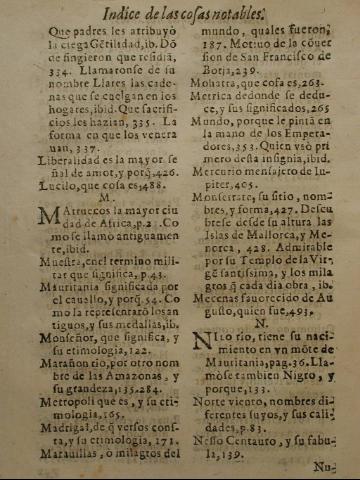 Indice de las cosas notables.
Que padres les atribuyò
la ciega Gẽtilidad, ib. Dõ
de fingieron que residiã,
334. Llamaronse de su
nombre Llares las cade-
nas que se cuelgan en los
hogares, ibid. Que sacrifi-
cios les hazian, 335. La
forma en que los venera
uan, 337.
Liberalidad es la mayor se
ñal de amor, y porq̃, 426.
Lucilo, que cosa es, 488.
M.
MArruecos la mayor ciu
dad de Africa, p. 21. Co
mo se llamò antiguamen
te, ibid.
Muestra, en el termino mili-
tar que significa, p. 43.
Mauritania significada por
el cauallo, y porq̃. 54. Co
mo la representarõ los an
tiguos, y sus medallas, ib.
Monseñor, que significa, y
su etimologia, 122.
Marañon rio, por otro nom
bre de las Amazonas, y
su grandeza, 135. 284.
Metropoli que es, y su eti-
mologia, 165.
Madrigal, de q̃ versos cons-
ta, y su etimologia, 171.
Marauillas, ò milagros del
mundo, quales fueron,
187. Motiuo de la cõuer
sion de San Francisco de
Borja, 239.
Mohatra, que cosa es, 263.
Metrica dedonde se dedu-
ce, y sus significados, 265
Mundo, porque le pintã en
la mano de los Empera-
dores, 353. Quien vsò pri
mero desta insignia, ibid.
Mercurio mensajero de Iu-
piter, 405.
Monserrate, su sitio, nom-
bres, y forma, 427. Descu
brese desde su altura las
Islas de Mallorca, y Me-
norca, 428. Admirable
por su Templo de la Vir-
gẽ santissima, y los mila
gros q̃ cada dia obra, ib.
Mecenas fauorecido de Au
gusto, quien fue, 493.
N.
NIlo rio, tiene su naci-
miento en vn mõte de
Mauritania, pag. 36. Lla-
mose tambien Nigro, y
porque, 133.
Norte viento, nombres di-
ferentes suyos, y sus cali
dades, p. 83.
Nesso Centauro, y su fabu-
la, 139.
Nu-